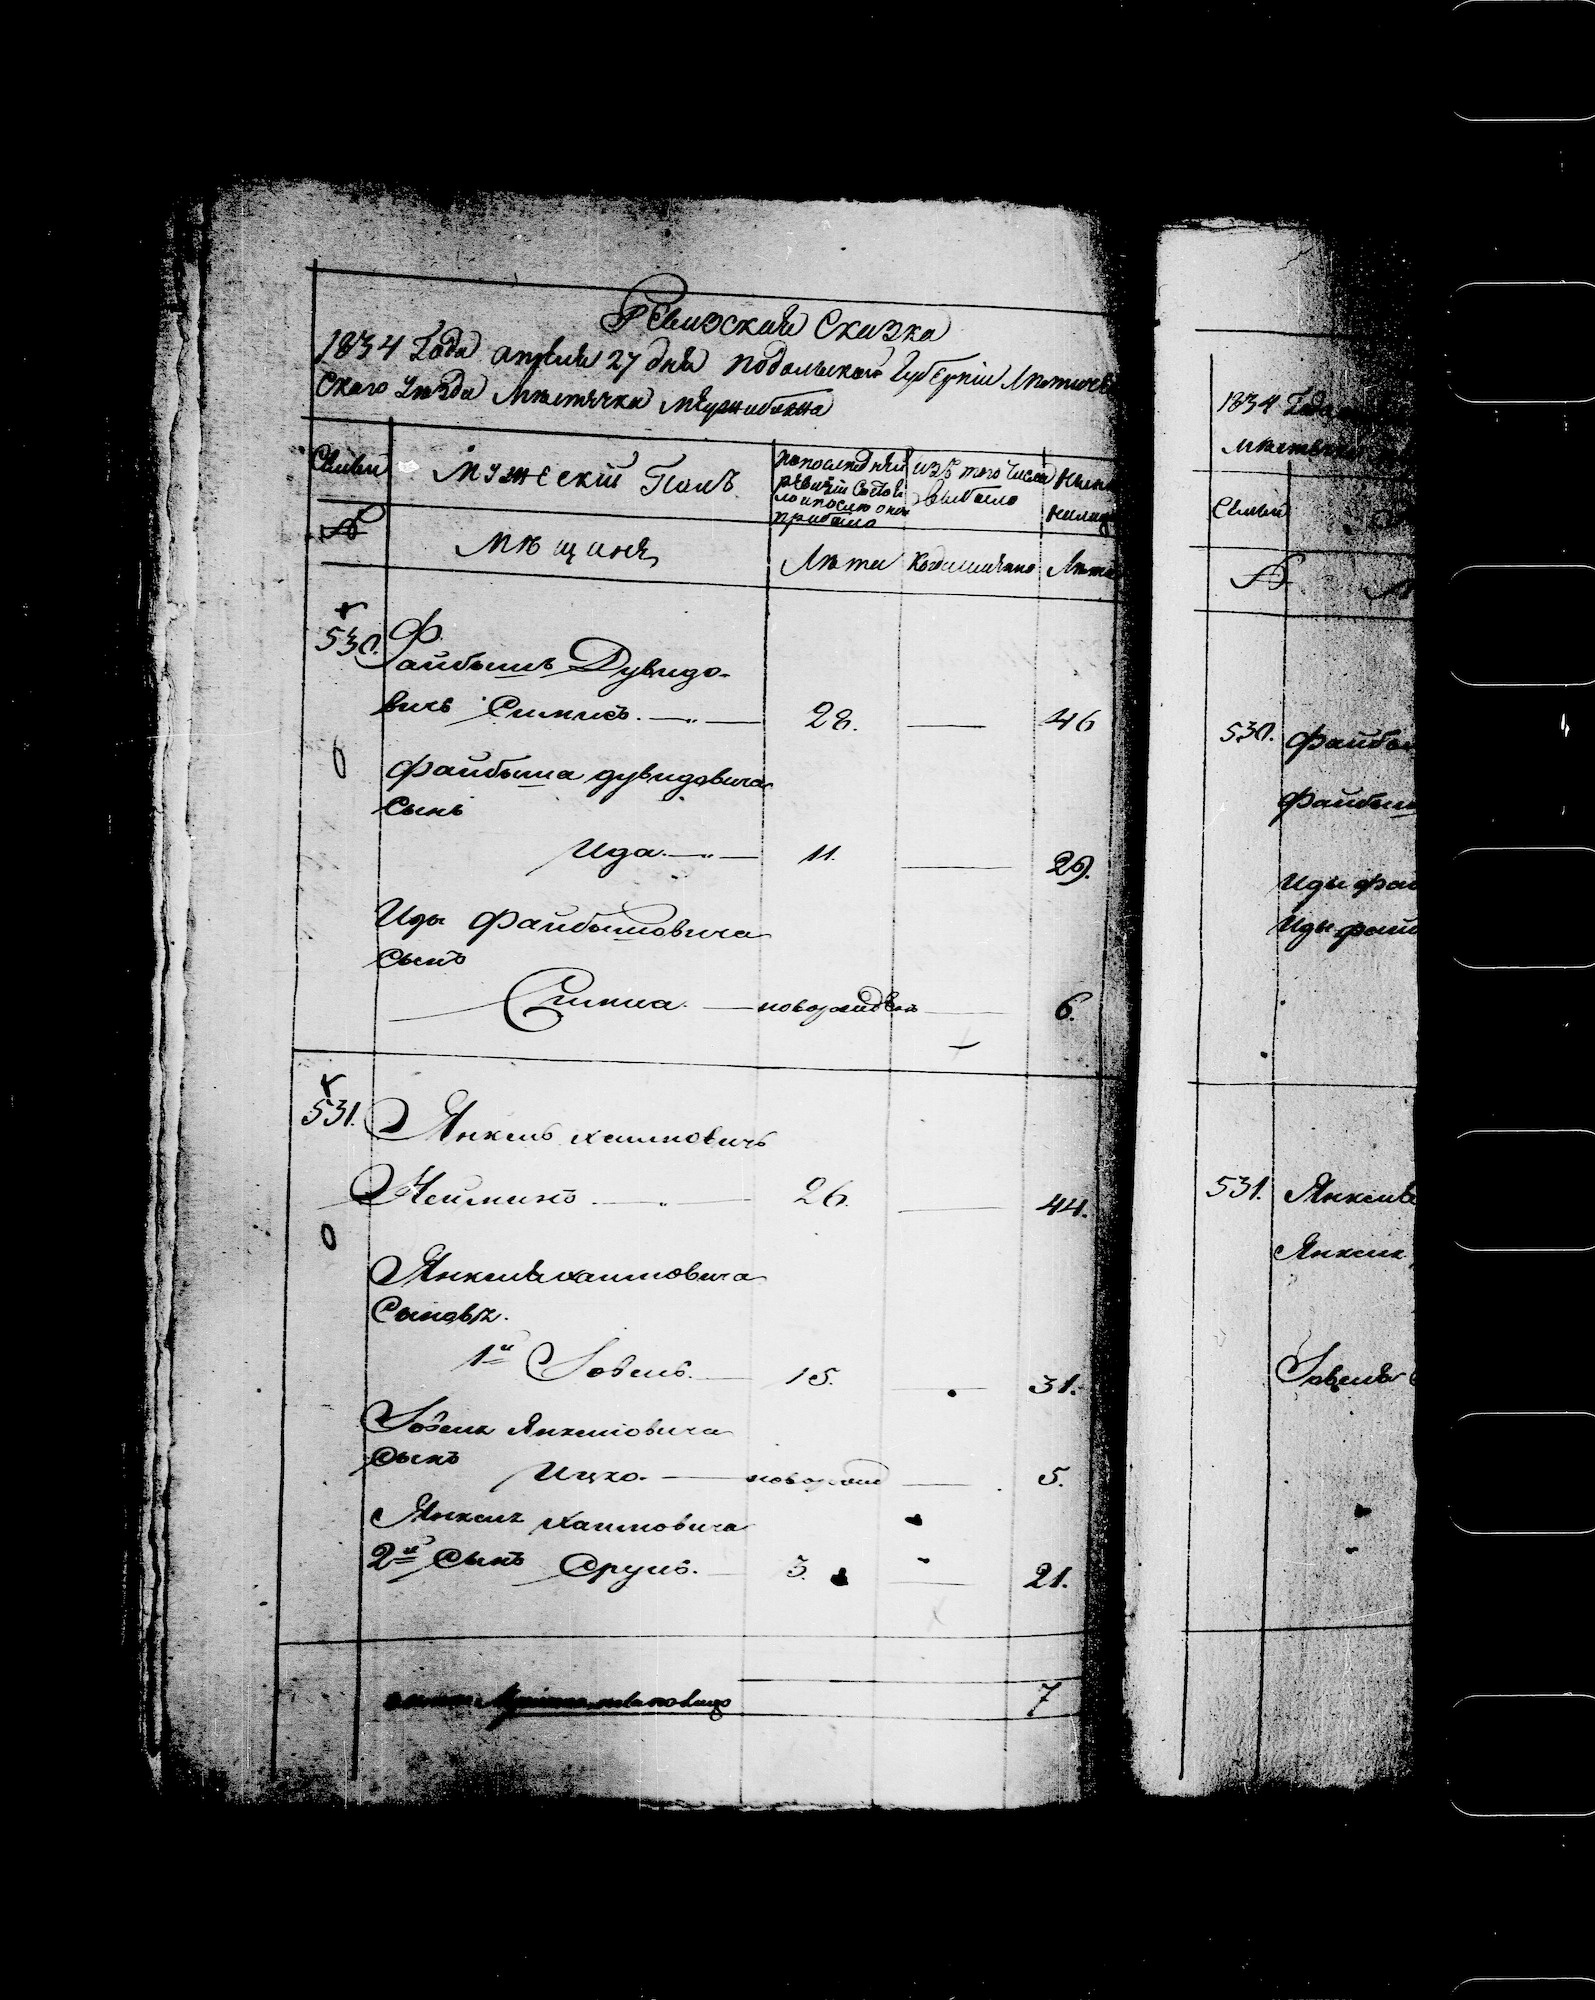 Ревизская Сказка
1834 Года апреля 27 дня Подольской Губернiи Лѣтичев
скаго Уѣзда Мѣстечка Меджибожа
Семьи
Мужескiй Полъ
По последней
ревизiи состоя
ло и после оной
прибыло
изъ того числа
выбыло
Ныне
налицо
№
Мѣщаня
Лѣта
Когда именно
Лѣта
530.
Файбишъ Дувидо-
вичъ Симисъ. 28. 46
Файбиша Дувидовича
Сынъ
Ида. 11. 29.
Иды Файбишовича
Сынъ
Симха. новорожден 6.
531. Янкель Хаимовичъ
Неймикъ 26. 44.
Янкеля Хаимовича
Сыновья.
1й Іовель. 15. 31.
Іовеля Янкелiовича
Сынъ
Ицко. новорожд 5.
Янкеля Хаимовича
2й Сынъ Сруль. 3. 21.
7
1834 Года
Мѣстечка
Семьи
№
530. Файби
Файбиш
Иды Фай
Иды Файб
531. Янкеля
Янкеля
Іовеля